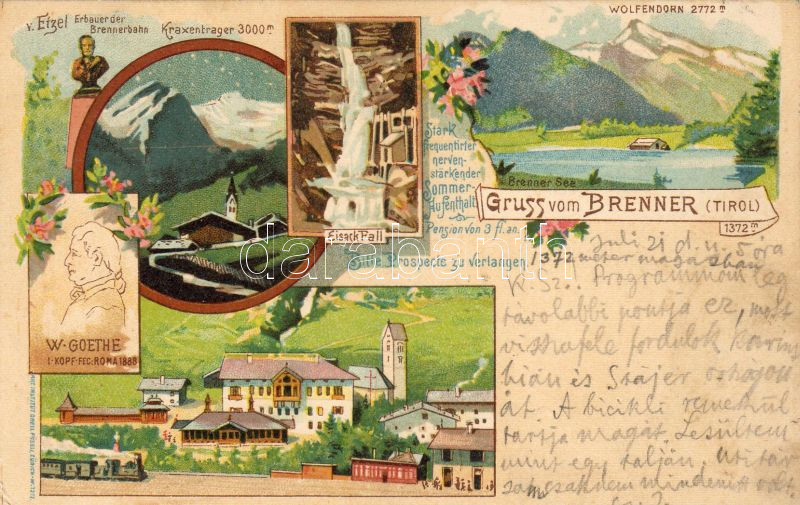 v. Etzel Erbauer der
Brennerbahn
Kraxentrager 3000 m
WOLFENDORN 2772 m
Stark
frequentirter
nerven-
stärkender
Sommer-
Aufenthalt
Pension von 3 fl. an.
Bitte Prospecte zu verlangen.
Eisack Fall
Brenner See
Gruss vom BRENNER (TIROL)
1372 m
W. GOETHE
I. KOPF. FEC. ROMA 1888
darabanth
Juli 21 d. u. 5 óra
1372 méter magasban
K. Sz. Programmom leg
távolabbi pontja ez, most
visszafele fordulok Karin
thián és Stájer országon
át. A bicikli remekül
tartja magát. Lesültem
mint egy talján,
csaknem mindenütt